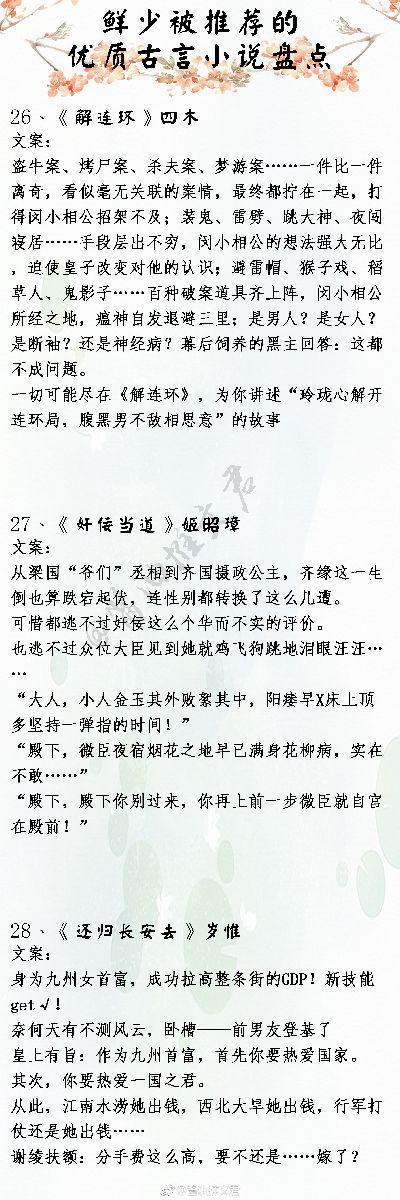 鲜少被推荐的
优质古言小说盘点
26、《解连环》四木
文案：
盗牛案、烤尸案、杀夫案、梦游案……一件比一件
离奇，看似毫无关联的案情，最终都拧在一起，打
得闵小相公招架不及；装鬼、雷劈、跳大神、夜闯
寝居……手段层出不穷，闵小相公的想法强大无比
，迫使皇子改变对他的认识；避雷帽、猴子戏、稻
草人、鬼影子……百种破案道具齐上阵，闵小相公
所经之地，瘟神自发退避三里；是男人？是女人？
是断袖？还是神经病？幕后饲养的黑主回答：这都
不成问题。
一切可能尽在《解连环》，为你讲述“玲珑心解开
连环局，腹黑男不敌相思意”的故事
27、《奸佞当道》姬昭璋
文案：
从梁国“爷们”丞相到齐国摄政公主，齐缘这一生
倒也算跌宕起伏，连性别都转换了这么几遭。
可惜都逃不过奸佞这么个华而不实的评价。
也逃不过众位大臣见到她就鸡飞狗跳地泪眼汪汪…
…
“大人，小人金玉其外败絮其中，阳痿早X床上顶
多坚持一弹指的时间！”
“殿下，微臣夜宿烟花之地早已满身花柳病，实在
不敢……”
“殿下，殿下你别过来，你再上前一步微臣就自宫
在殿前！”
28、《还归长安去》岁惟
文案：
身为九州女首富，成功拉高整条街的GDP！新技能
get√！
奈何天有不测风云，卧槽——前男友登基了
皇上有旨：作为九州首富，首先你要热爱国家。
其次，你要热爱一国之君。
从此，江南水涝她出钱，西北大旱她出钱，行军打
仗还是她出钱……
谢绫扶额：分手费这么高，要不还是……嫁了？